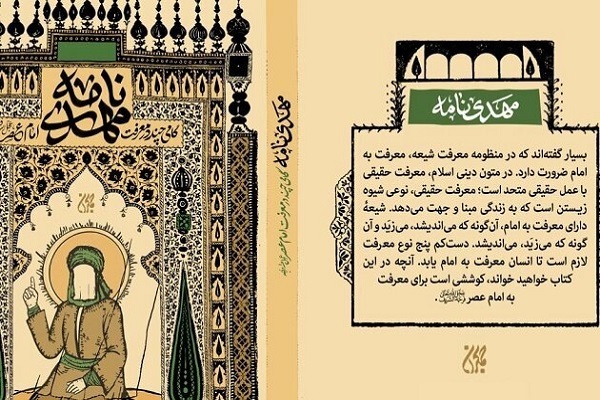 مهدی نامه
گامی چند در معرفت امام عصر
مهدی نامه گامی چند در معرفت امام عصر
مهدی نامه
بسیار گفته‌اند که در منظومه معرفت شیعه، معرفت به
امام ضرورت دارد. در متون دینی اسلام، معرفت حقیقی
با عمل حقیقی متحد است؛ معرفت حقیقی، نوعی شیوه
زیستن است که به زندگی مبنا و جهت می‌دهد. شیعهٔ
دارای معرفت به امام، آن‌گونه که می‌اندیشد، می‌زیَد و آن
گونه که می‌زیَد، می‌اندیشد. دست‌کم پنج نوع معرفت
لازم است تا انسان معرفت به امام یابد. آنچه در این
کتاب خواهید خواند، کوششی است برای معرفت
به امام عصر .